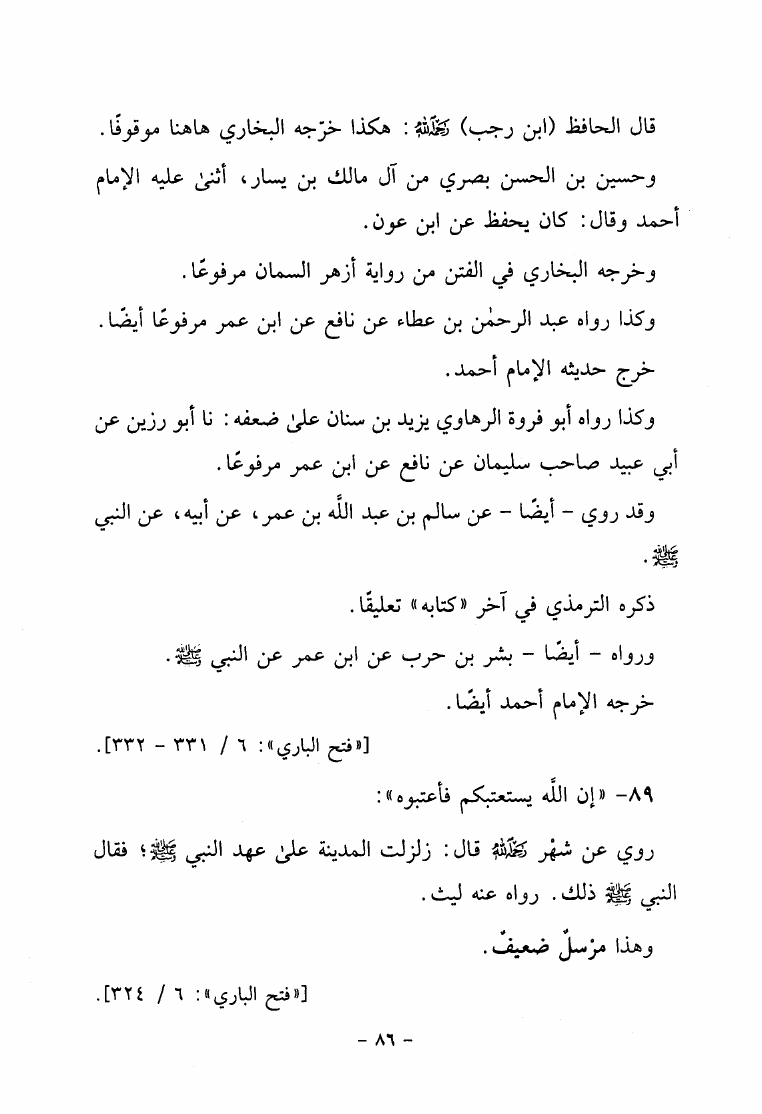 قال الحافظ (ابن رجب) رحمه الله : هكذا خرّجه البخاري هاهنا موقوفًا.
وحسين بن الحسن بصري من آل مالك بن يسار، أثنىٰ عليه الإمام
أحمد وقال: كان يحفظ عن ابن عون.
وخرجه البخاري في الفتن من رواية أزهر السمان مرفوعًا.
وكذا رواه عبد الرحمٰن بن عطاء عن نافع عن ابن عمر مرفوعًا أيضًا.
خرج حديثه الإمام أحمد.
وكذا رواه أبو فروة الرهاوي يزيد بن سنان علىٰ ضعفه: نا أبو رزين عن
أبي عبيد صاحب سليمان عن نافع عن ابن عمر مرفوعًا.
وقد روي - أيضًا - عن سالم بن عبد اللَّه بن عمر، عن أبيه، عن النبي
ﷺ.
ذكره الترمذي في آخر «كتابه» تعليقًا.
ورواه - أيضًا - بشر بن حرب عن ابن عمر عن النبي ﷺ.
خرجه الإمام أحمد أيضًا.
[«فتح الباري»: ٦ / ٣٣١ - ٣٣٢].
٨٩- «إن اللَّه يستعتبكم فأعتبوه»:
روي عن شهْر رحمه الله قال: زلزلت المدينة علىٰ عهد النبي ﷺ؛ فقال
النبي ﷺ ذلك. رواه عنه ليث.
وهذا مرْسلٌ ضعيفٌ.
[«فتح الباري»: ٦ / ٣٢٤].
- ٨٦ -